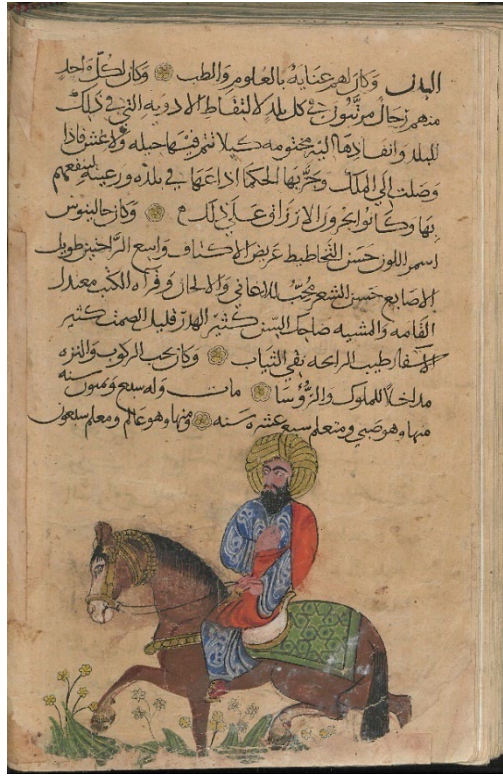 البدن وكان لهم عناية بالعلوم والطب وكان لكل واحد
منهم رجال مرتبون في كل بلد لالتقاط الادويه التي في ذلك
البلد وانفادها اليه مختومه كيلا تتم فيها حيله ولا غش فاذا
وصلت الى الملك وجربها الحكما اذاعها في بلده ورعيته لينفعهم
بها وكانوا يجرون الارزاق على ذلك وكان جالينوس
اسمر اللون حسن التخاطيط عريض الاكتاف واسع الراحتين طويل
الاصابع حسن الشعر محب للاغاني والالحان وقراه الكتب معتدل
القامه والمشيه ضاحك السن كثير الهدر قليل الصمت كثير
الاسفار طيب الرائحه نقي الثياب وكان يحب الركوب والنزه
مداخلا للملوك والرؤسا مات وله سبع وثمنون سنه
منها وهو صبي ومتعلم سبع عشره سنه ومنها وهو عالم ومعلم سبعون